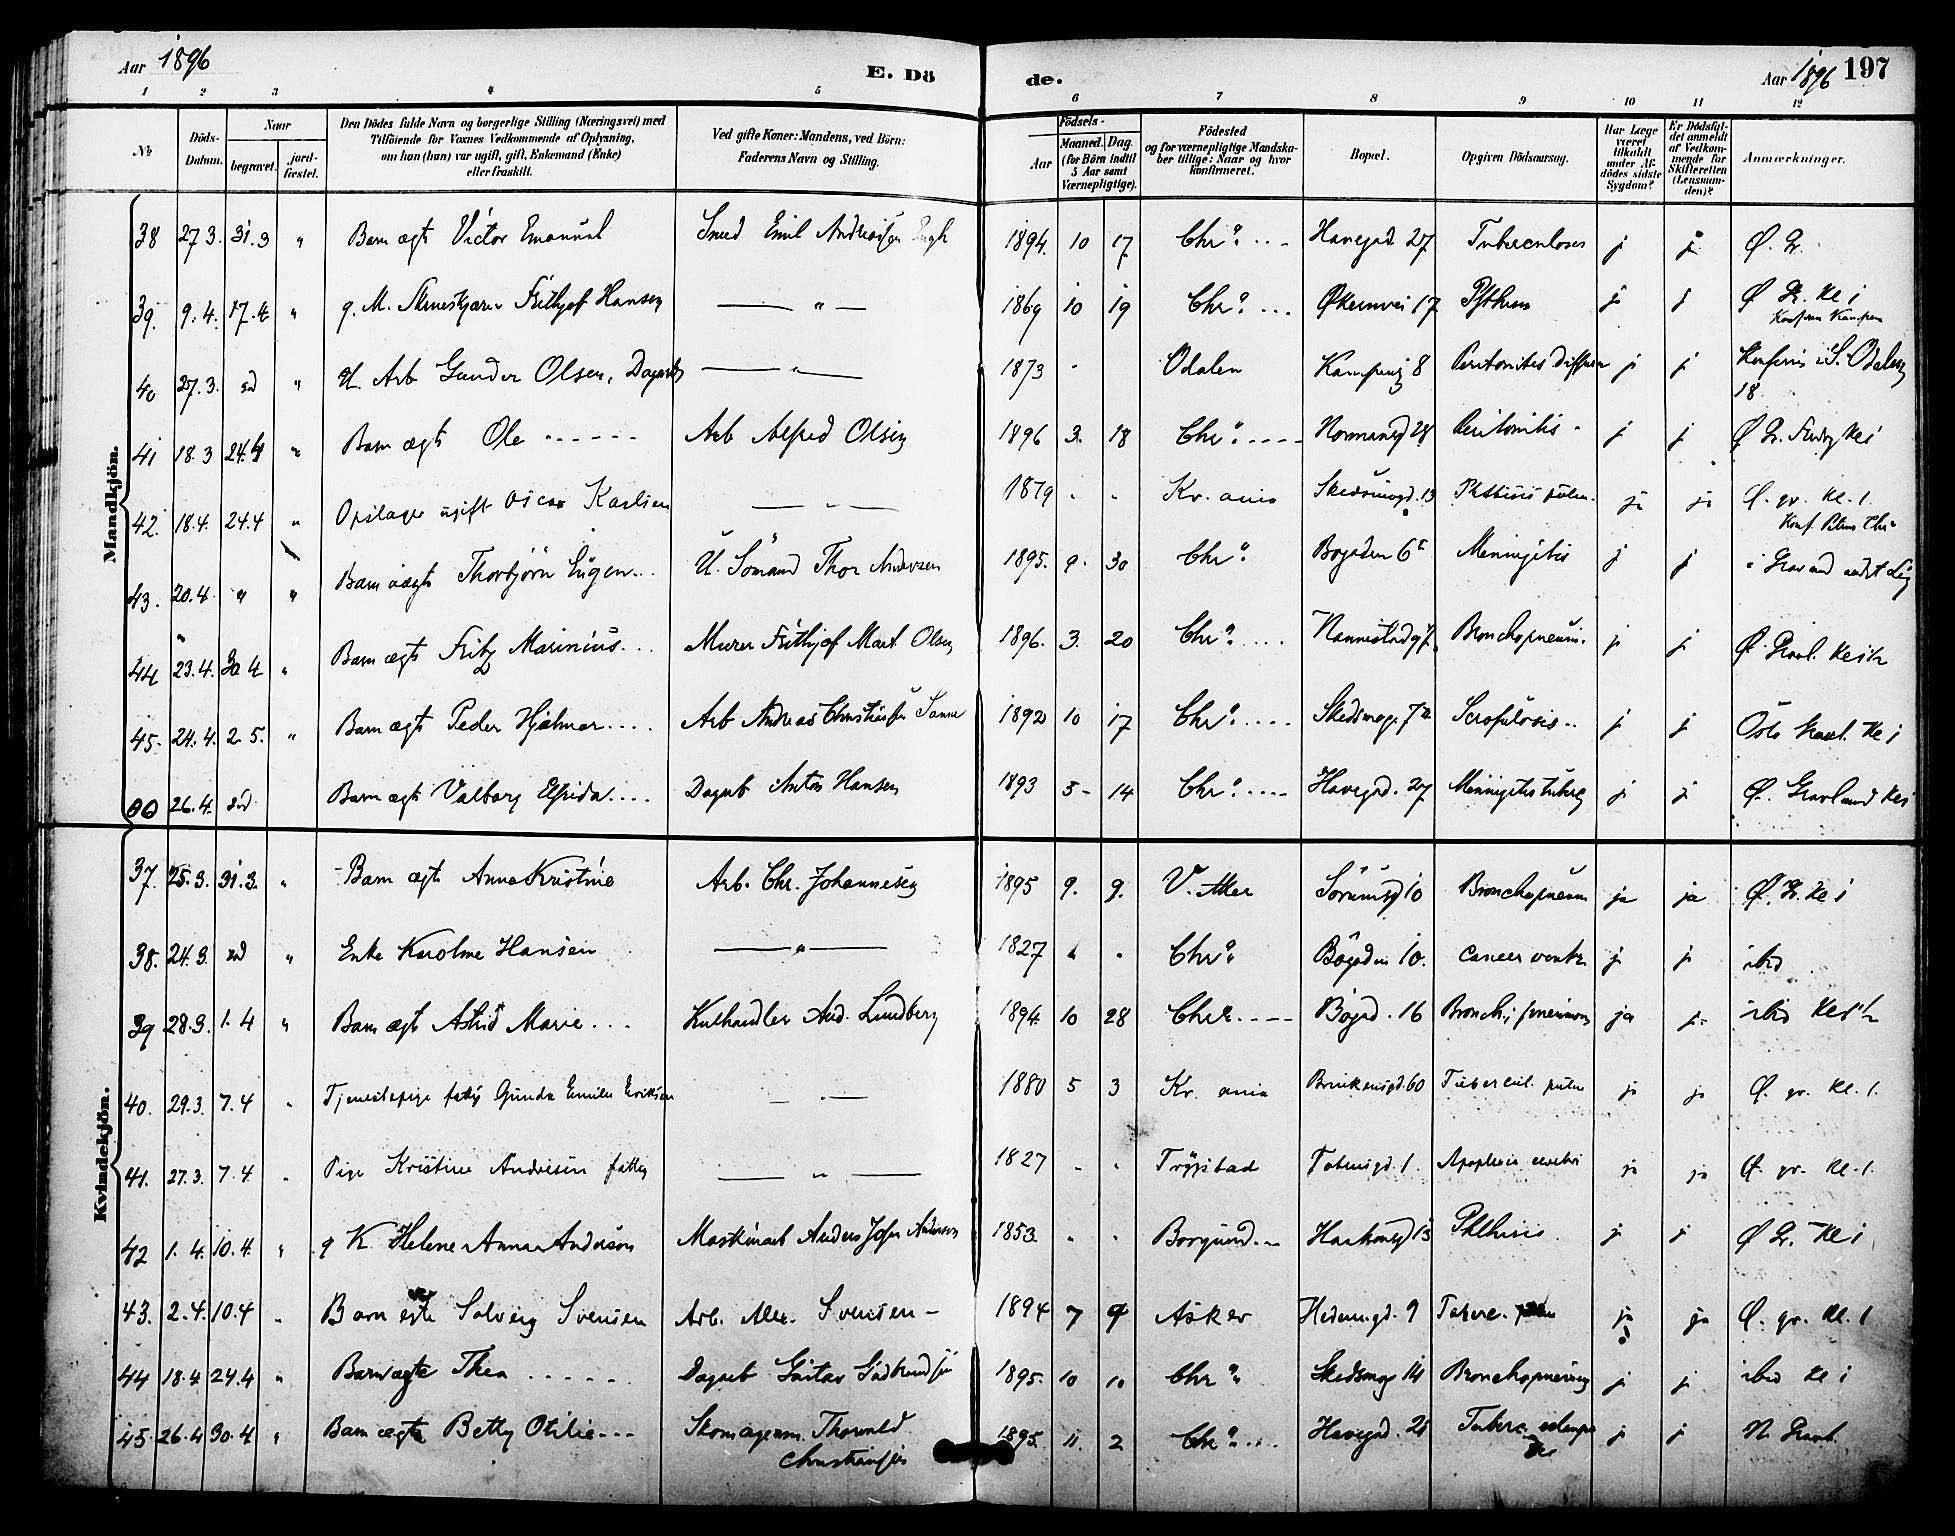 Aar 1896 E. Dö de. Aar 1896 197
1 2 3 4 5 6 7 8 9 10 11 12
No. Döds-Datum. Naar begravet. jord-fæstet. Den Dödes fulde Navn og borgerlige Stilling (Næringsvei) med Tilföiende for Voxnes Vedkommende af Oplysning, om han (hun) var ugift, gift, Enkemand (Enke) eller fraskilt. Ved gifte Koner: Mandens, ved Börn: Faderens Navn og Stilling. Födsels- Aar Maaned. Dag. (for Börn indtil 5 Aar samt Værnepligtige). Födested og for værnepligtige Mandskaber tillige: Naar og hvor konfirmeret. Bopæl. Opgiven Dödsaarsag. Har Læge været tilkaldt under Afdödes sidste Sygdom? Er Dödsfaldet anmeldt af Vedkommende for Skifteretten (Lensmanden)? Anmærkninger.
Mandkjön.
38 27.3. 31.3 " Barn ægt Victor Emanuel Smed Emil Andreasen Engh 1894. 10 17 Chr a. ... Havegad 27 Tuberculoses j j Ø. Gr.
39. 9.4. 17.4 " g. M. Frithjof Hansen — " — 1869 10 19 Chr a. ... Økernvei 17 j j Ø Gr. Kl i
Konf. Kampen
40 27.3. " U. Arb Gunder Olsen, — " — 1873 " Odalen Kampeng 8 Peritonites j j Konfirm. i S. Odalen
18
41 18.3 24.4 " Barn ægt Ole ------ Arb Alfred Olsen 1896 3. 18 Chr a. .... Normansgd 28 Peritonitis - j j Ø Gr. Kl i
42. 18.4. 24.4 " ugift Oscar Karlsen — " — 1879 " " Kr. ania Skedsmogd. 13 Phthisis pulm. ja ja Ø. gr. Kl. 1.
Konf. Chr a
43. 20.4. " " Barn uægt Thorbjörn Eugen ... U. Sömand Thor Andersen 1895. 9. 30 Chr a. Bogaden 6 Meningitis j j i Grav med andet Lig
44 23.4. 30.4 " Barn ægt Fritz Marinius ... Murer Frithjof Mart Olsen 1896. 3. 20 Chr a. .... Nannestadg 7 Bronchopneum. j j Ø. Gravl. Kl
45. 24.4. 2.5. " Barn ægt Peder Hjalmar .... Arb Andreas Christiansen 1892 10 17 Chr a. .... Skedsmog. 7 Scrofulosis .. j j Oslo Gravl. Kl i
26.4. Barn ægt Valborg Elfrida .... Dagarb Anton Hansen 1893 5 - 14 Chr a. .... Havegad. 27 Meningitis tuberc j j Ø. Gravlund Kl i
Kvindekjön.
37. 25.3. 31.3. " Barn ægt Anna Kristine Arb. Chr. Johannesen 1895 9. 9. V. Aker Sörumsgd 10 Bronchopneum ja ja Ø. Gr. Kl i
38. 24.3. " Enke Karoline Hansen — " — 1827 " " Chr a Bögaden 10. cancer ventr. j j ibid
39 28.3. 1.4 " Barn ægt Astrid Marie ... Kulhandler And. Lundberg 1894 10 28 Chr a. .... Bögad. 16 Bronch. pneumoni ja j. ibid
40. 29.3. 7.4 " Tjenestepige fattig Gunda Emilie Eriksen — " — 1880 5 3 Kr. ania 60 Tubercul. pulm ja ja Ø. gr. Kl. 1.
41. 27.3. 7.4 " Pige Kristine Andresen fattig — " — 1827 " " Trögstad Totensgd. 1. Apoplexia cerebri ja ja Ø. gr. Kl. 1.
42 1.4. 10.4. " g K. Helene Anna Anderson Maskinarb Anders Johan Anderson 1853 " " Borgund... Haakonsgd 13 Phthisis. j j Ø Gr. Kl i
43. 2.4. 10.4 " Barn ægte Solveig Svensen Arb. Alex. Svensen - 1894 7 9 Asker Hedem.gd. 9 Taberc. ja ja Ø. gr. Kl. 1
44 18.4. 24.4 " Barn ægte Thea ...... Dagarb Gustav Gudbrandsen 1895. 10 10 Chr a. Skedsmog 14 Bronchopneumoni j j ibid Kl i
45. 26.4 30.4 " Barn ægte Betty Otilie --- Skomagerm. Thorvald
Christiansen 1895. 11. 2 Chr a. .... Havegad. 21 Taberc. j j N. Gravl.